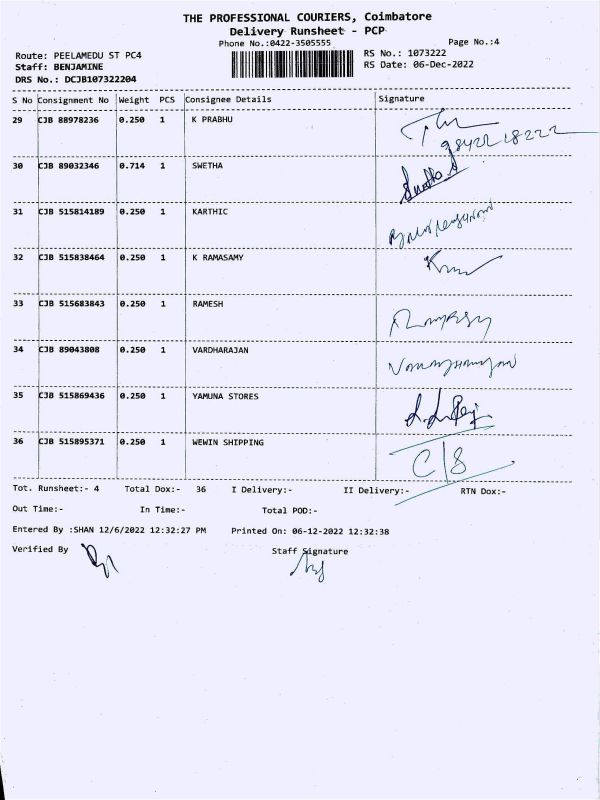 THE PROFESSIONAL COURIERS, Coimbatore
Delivery Runsheet - PCP
Phone No.:0422-3505555 Page No.:4
Route: PEELAMEDU ST PC4 RS No.: 1073222
Staff: BENJAMINE RS Date: 06-Dec-2022
DRS No.: DCJB107322204
S No Consignment No Weight PCS Consignee Details Signature
29 CJB 88978236 0.250 1 K PRABHU
9842218222
30 CJB 89032346 0.714 1 SWETHA
31 CJB 515814189 0.250 1 KARTHIC
32 CJB 515838464 0.250 1 K RAMASAMY
33 CJB 515683843 0.250 1 RAMESH
34 CJB 89043808 0.250 1 VARDHARAJAN
35 CJB 515869436 0.250 1 YAMUNA STORES
36 CJB 515895371 0.250 1 WEWIN SHIPPING C/S
Tot. Runsheet:- 4 Total Dox:- 36 I Delivery:- II Delivery:- RTN Dox:-
Out Time:- In Time:- Total POD:-
Entered By :SHAN 12/6/2022 12:32:27 PM Printed On: 06-12-2022 12:32:38
Verified By Staff Signature